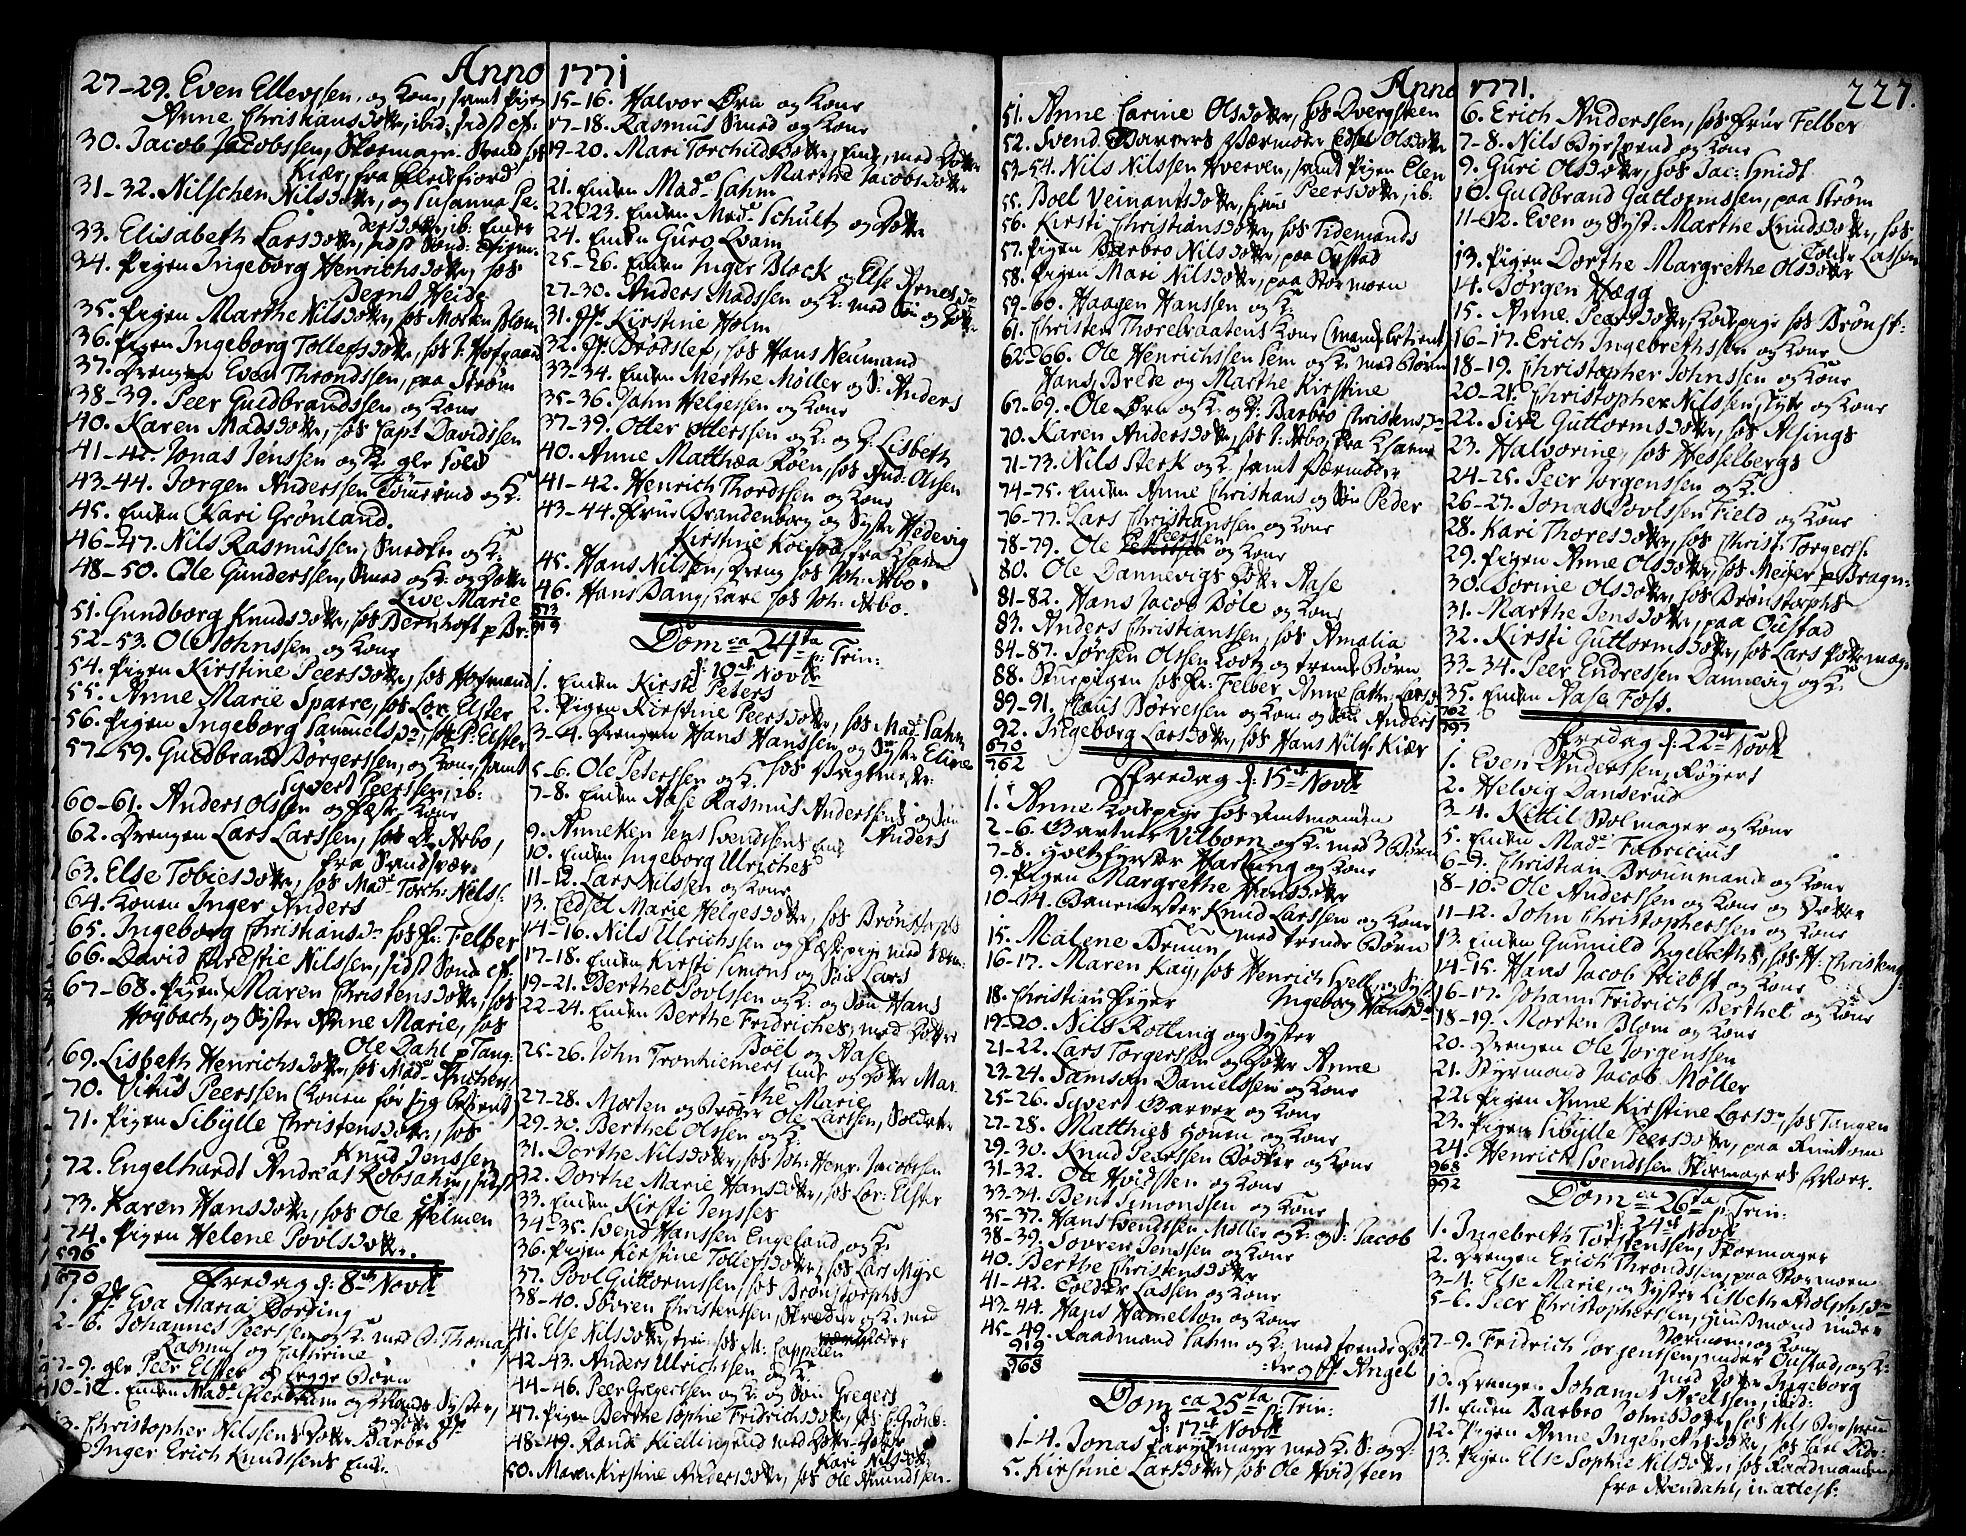 Anno 1771
27-29. Even Ellevssen, og Kone, samt Pigen
Anne Christiansdotter, ibid: sidst
30. Jacob Jacobssen, Skomagr. Svend hos
Kiær, fra
31-32. Nilschen Nilsdotter, og Susanna Pe-
dersdotter, ib: Enker
33. Elisabeth Larsdotter, sidst
34. Pigen Ingeborg Henrichsdotter, hos
Bernt Heide
35. Pigen Marthe Nilsdotter, hos Morten Blom
36. Pigen Ingeborg Tollefsdotter, hos J: Hofgaard
37. Drengen Even Throndssen, paa Strøm
38-39. Peer Guldbrandssen og Kone
40. Karen Madsdotter, hos Capt Davidssen
41-42. Jonas Jenssen og K. glr Told
43-44. Jorgen Anderssen Tømmrmd og K:
45. Enken Kari Grønland.
46-47. Nils Rasmussen, Snedker og K:
48-50. Ole Gunderssen, Smed og K: og Dotter
Live Marie
51. Gundborg Knudsdotter, hos Bernhoft p Br:
52-53. Ole Johnssen og Kone
54. Pigen Kirstine Peersdotter, hos Hofmand
55. Anne Marie Sparre, hos Lor: Elster
56. Pigen Ingeborg Samuelsdr, hos P: Elster
57-59. Guldbrand Børgerssen, og Kone, samt
Syvert Peerssen, ib:
60-61. Anders Olssen og Fæste Kone
62. Drengen Lars Larssen, hos Arbo,
fra Sandsvær
63. Else Tobiesdotter, hos Made Torch: Nils:
64. Konen Inger Anders
65. Ingeborg Christiansdr hos Fr: Felber
66. David Nilssen, sidst Sønd:
67-68. Pigen Maren Christensdotter, hos
Hogbach, og Syster Anne Marie, hos
Ole Dahl p Tang:
69. Lisbeth Henrichsdotter, hos Made
70. Vitus Peerssen (Konen før syg betient)
71. Pigen Sibylle Christensdotter, hos
Knud Jenssen
72. Engelhardt Andreas Robsahm, sidst
73. Karen Hansdotter, hos Ole Helmen
74. Pigen Helene Povlsdotter.
596
670
Fredag d: 8de Novbr
1. Jfr Eva Maria Dorfing
2-6. Johannes Peerssen og K: med Thomas
Rasmus og Cathrine
7-9. glr Peer Elster og begge Børn
10-12. Enken Made og Syster,
13. Christopher Nilssens Dotter Barbro
Inger Erich Knudssens Enke
15-16. Halvor Ørn og Kone
17-18. Rasmus Smed og Kone
19-20. Mari Torchildsdotter, Enke, med Dotter
Marthe Jacobsdotter
21. Enken Made Sahm
22-23. Enken Made Schultz og Dotter
24. Enken Guro Qvam
25-26. Enken Inger Block og Else Arnesdr
27-30. Anders Madssen og K: med Søn og Dotter
31. Jfr Kirstine Holm
32. Jfr Brodslef, hos Hans Neumand
33-34. Enken Merthe Møller og S: Anders
35-36. John Helgessen og Kone
37-39. Otter Otterssen og K: og D: Lisbeth
40. Anne Matthæa Røen, hos And: Olsen
41-42. Henrich Thordssen og Kone
43-44. Frue Brandenborg og Syster Hedevig
Kirstine
45. Hans Nilsen, Dreng hos Joh: Arbo
46. Hans Bang, Karl hos Joh: Arbo.
873
919
Domca 24ta p: Trin:
d: 10de Novbr
1. Enken Kirsti Peters
2. Pigen Kirstine Peersdotter, hos Made Sahm
3-4. Drengen Hans Hanssen, og Syster Eline
hos Vagtmester
5-6. Ole Peterssen og K:
7-8. Enken Aase Rasmus Anderssens og Søn
Anders
9. Anneken Jens Svendssens Enke
10. Enken Ingeborg Ulriches
11-12. Lars Nilssen og Kone
13. Cedsel Marie Helgesdotter, hos Brønstorphs
14-16. Nils Ulrichssen og Fæstpige med
17-18. Enken Kirsti Simons og Søn Lars
19-21. Berthel Povlssen og K: og Søn Hans
22-24. Enken Berthe Fridriches, med Døttre
Boel og Aase
25-26. John Tronhiemers Enke og Dotter Mar-
the Marie
27-28. Morten og Broder Ole Larssen, Soldater
29-30. Berthel Olssen og K:
31. Dorthe Nilsdotter, hos Joh: Henr: Jacobssen
32. Dorthe Marie Hansdotter, hos Lor: Elster
33. Enken Kirsti Jensses
34-35. Svend Hanssen Engeland og K:
36. Pigen Kirstine Tollefsdotter, hos Lars Myre
37. Povl Guttormssen, hos Bronstorphs
38-40. Søvren Christenssen, Skræder og K: med
41. Else Nilsdotter, hos M: Cappelen
42-43. Anders Ulrichssen og K:
44-46. Peer Gregerssen og K: og Søn Gregers
47. Pigen Berthe Sophie Fridrichsdotter, hos
48-49. Rande Kiellingrud med Dotter-Dotter
Kari Nilsdotter
50. Maren Kirstine Andersdotter, hos Ole Amundssen
Anno 1771. 227.
51. Anne Carine Olsdotter, hos Dvergsteen
52. Svend Barvers Værmoder Edsel Olsdotter
53-54. Nils Nilssen Hverven, samt Pigen Elen
Peersdotter, ib:
55. Boel Veinantsdotter,
56. Kirsti Christiansdotter, hos Tidemands
57. Pigen Barbro Nilsdotter, paa Oustad
58. Pigen Mari Nilsdotter, paa Stormoen
59-60. Haagen Hanssen og K:
61. Christen Thorelraatens Kone (Manden betient
62-66. Ole Henrichssen Sem og K: med Børn
Hans, Brede og Marthe Kirstine
67-69. Ole Ørn og K: og D: Barbro Christensdr
70. Karen Andersdotter, hos J: Arbo,
71-73. Nils Sterk og K: samt Værmoder
74-75. Enken Anne Christians og Søn Peder
76-77. Lars Christianssen og Kone
78-79. Ole Peerssen og Kone
80. Ole Dannevigs Dotter Aase
81-82. Hans Jacob Bøle og Kone
83. Anders Christianssen, hos Amalia
84-87. Jørgen Olssen Loots og trende Børn
88. Stuepigen hos Fr: Felber Anne Cathr: Larsdr
89-91. Claus Børressen og Kone og Søn Anders
92. Ingeborg Larsdotter, hos Hans Nilss: Kiær
670
762
Fredag d: 15de Novbr
1. Anne Kokpige hos Amtmanden
2-6. Gartner Vilborn og K: med 3 Børn
7-8. Holtzførster Harling og Kone
9. Pigen Margrethe Hansdotter
10-14. Banemester Knud Larssen og Kone
med trende Børn
15. Malene Bruun
16-17. Maren Kay, hos Henrich Hvell, og Syst:
Ingeborg Hansdr
18. Christian Frger
19-20. Nils Rotling og Syster
21-22. Lars Torgerssen og Dotter Anne
23-24. Samson Danielssen og Kone
25-26. Syvert Garver og Kone
27-28. Matthies Houen og Kone
29-30. Knud Peerssen Bødker og Kone
31-32. Ole Hvidsten og Kone
33-34. Bent Simonssen og Kone
35-37. Hans Svendssen Møller og K: og S: Jacob
38-39. Sovren Jenssen og Kone
40. Berthe Christensdotter
41-42. Tolder Lassen og Kone
43-44. Hans Hamelton og Kone
45-49. Raadmand Sahm og K: med tvende Døt-
tre og Jfr Angel
919
968
Domca 25ta p: Trin:
d: 17de Novbr
1-4. Jonas med K: S: og D:
5. Kirstine Larsdotter, hos Ole Hvidsteen
6. Erich Anderssen, hos Frue Felber
7-8. Nils Byrsvend og Kone
9. Guri Olsdotter, hos Jac: Smidt
10. Guldbrand Guttormssen, paa Strøm
11-12. Even og Syst: Marthe Knudsdotter, hos
Tolder Lassen
13. Pigen Dorthe Margrethe Olsdotter
14. Jørgen Hægg
15. Anne Peersdotter Kokpige hos Brønst:
16-17. Erich Ingebrethssen og Kone
18-19. Christopher Johnssen og Kone
20-21. Christopher Nilssen, og Kone
22. Siri Guttormsdotter, hos Alsings
23. Halvorine, hos Hesselbergs
24-25. Peer Jorgenssen og K:
26-27. Jonas Povlssen Field og Kone
28. Kari Thoresdotter, hos Christ: Torgerss:
29. Pigen Anne Olsdotter, hos Meyer p Bragn:
30. Sorine Olsdotter, hos Brønstorphs
31. Marthe Jensdotter, paa Oustad
32. Kirsti Guttormsdotter, hos Lars Pottemag:
33-34. Peer Endressen Dannevig og K:
35. Enken Aase Foss.
762
797
Fredag d: 22de Novbr
1. Even Anderssen, Røyert
2. Helvig Danserud
3-4. Kittil Stolmager og Kone
5. Enken Made Fabricius
6-7. Christian Brounmand og Kone
8-10. Ole Anderssen og Kone og Dotter
11-12. John Christopherssen og Kone
13. Enken Gunnild Ingebreths, hos H: Christens:
14-15. Hans Jacob Friebst og Kone
16-17. Johann Fridrich Berthel og Kone
18-19. Morten Blom og Kone
20. Drengen Ole Jorgenssen
21. Styrmand Jacob Møller
22. Pigen Anne Kirstine Larsdr, hos Tangen
23. Pigen Sibylle Peersdotter, paa Runtom
24. Henrich Svendssen Skomagers
968
992
Domca 26ta p: Trin:
d: 24de Novbr
1. Ingebreth Torstenssen, Skomager
2. Drengen Erich Throndssen, paa Stormoen
3-4. Else Marie, og Syster Lisbeth Adolphsdr
5-6. Peer Christopherssen, Huusmand under
Stormoen og Kone
7-9. Fridrich Jorgenssen, under Oustad, og K:
med Dotter Ingeborg
10. Drengen Johannes Axelssen, ibid:
11. Enken Barbro Johnsdotter, hos Nils Byrsvend
12. Pigen Anne Ingebrethsdotter, hos
13. Pigen Else Sophie Nilsdotter, hos Raadmanden,
fra Arendahl, in attest: